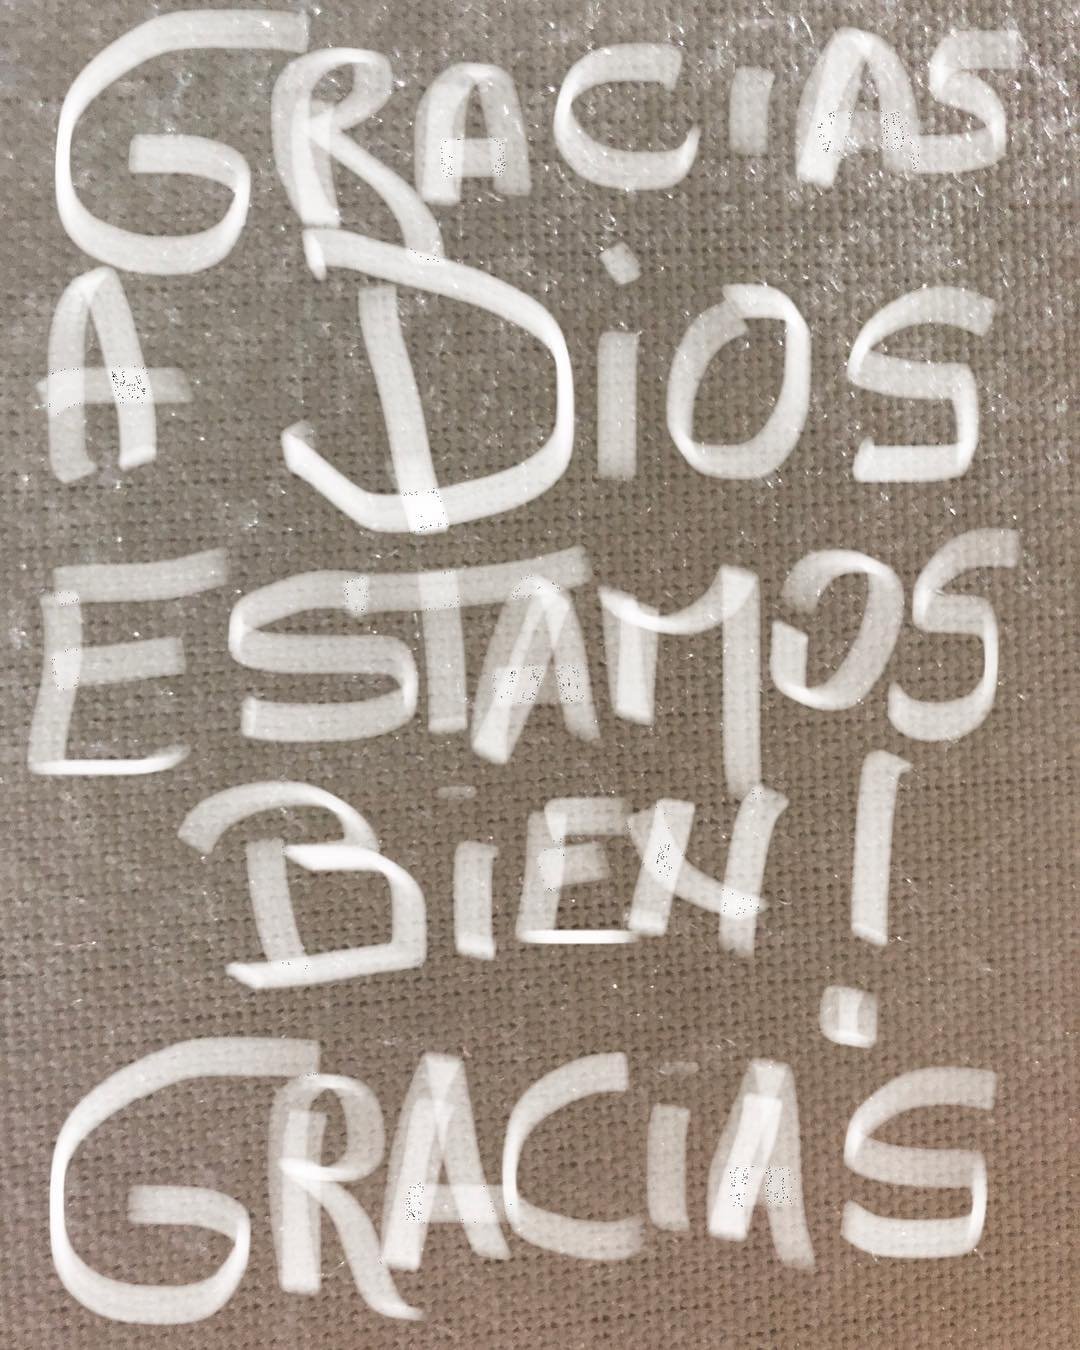 GRACiAS
A DiOS
ESTAMOS
BiEN!
GRACiAS